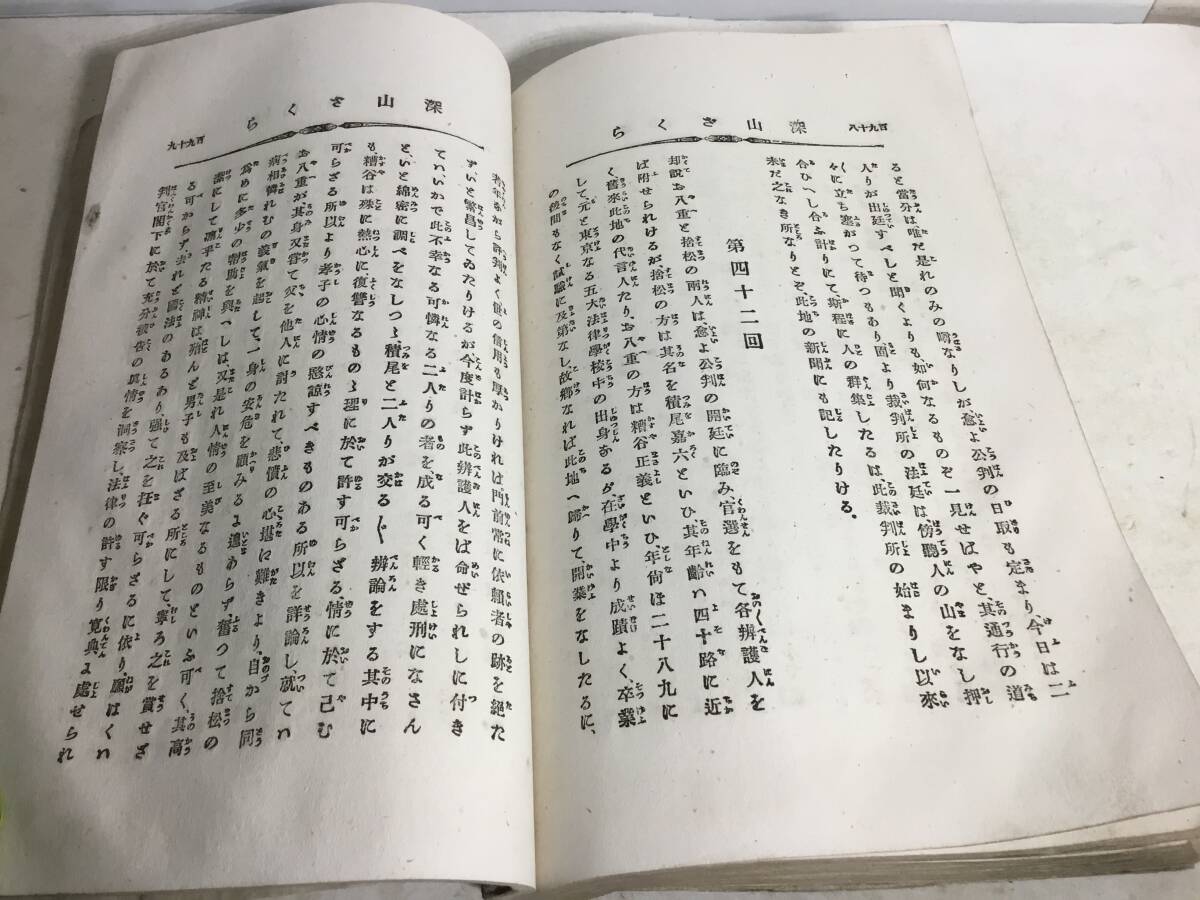 深山さくら
百九十八
ると當分は唯だ是れのみの噂なりしが愈よ公判の日取も定まり、今日は二
人りが出廷すべしと聞くよりも、如何なるものぞ一見せばやと、其通行の道
々に立ち塞がつて待つもあり面より裁判所の法廷は傍聽人の山をなし押
合ひへし合ふ計りにて斯程に人の群集したるは、此裁判所の始まりし以來
未だ之なき所なりとぞ此地の新聞にも記したりける。
第四十二回
却説お八重と捨松の兩人は、愈よ公判の開廷に臨み、官選をもて各辨護人を
ば附せられけるが捨松の方は其名を積尾嘉六といひ其年齡ハ四十路に近
く舊來此地の代言人たり、お八重の方は糟谷正義といひ年尚ほ二十八九に
して、元と東京なる五大法律學校中の出身あるが、在學中より成蹟よく、卒業
の後間もなく試驗に及第なし、故郷なれば此地へ歸りて、開業をなしたるに、
深山さくら
百九十九
者年ながら評判よく世の信用も厚かりければ門前常に依賴者の跡を絶た
ず、いと繁昌してゐたりけるが今度計らず此辨護人をば命ぜられしに付き
ていかで此不幸なる可憐なる二人りの者を、成る可く輕き處刑になさん
と、いと綿密に調べをなしつゝ積尾と二人りが交る〲辨論をする其中に
も、糟谷は殊に熱心に、復讐なるものゝ理に於て許す可らざる、情に於て己む
可らざる所以より孝子の心情の愍諒すべきものある所以を詳論し就てハ
お八重が其身又嘗て父を他人に討たれて、悲憤の心堪に難きより、自から同
病相憐れむの義氣を起して、一身の安危を顧みるに遑あらず、奮つて捨松の
爲めに多少の幇助を與へしは又是れ人情の至美なるものといふ可く、其高
潔にして凛乎たる精神は、殆んど男子も及ばざる所にして寧ろ之を賞せざ
る可からず去れど國法のあるあり、強て之を抂ぐ可らざるに依り、願はくハ
判官閣下に於て充分被告の眞情を洞察し、法律の許す限り寛典に處せられ